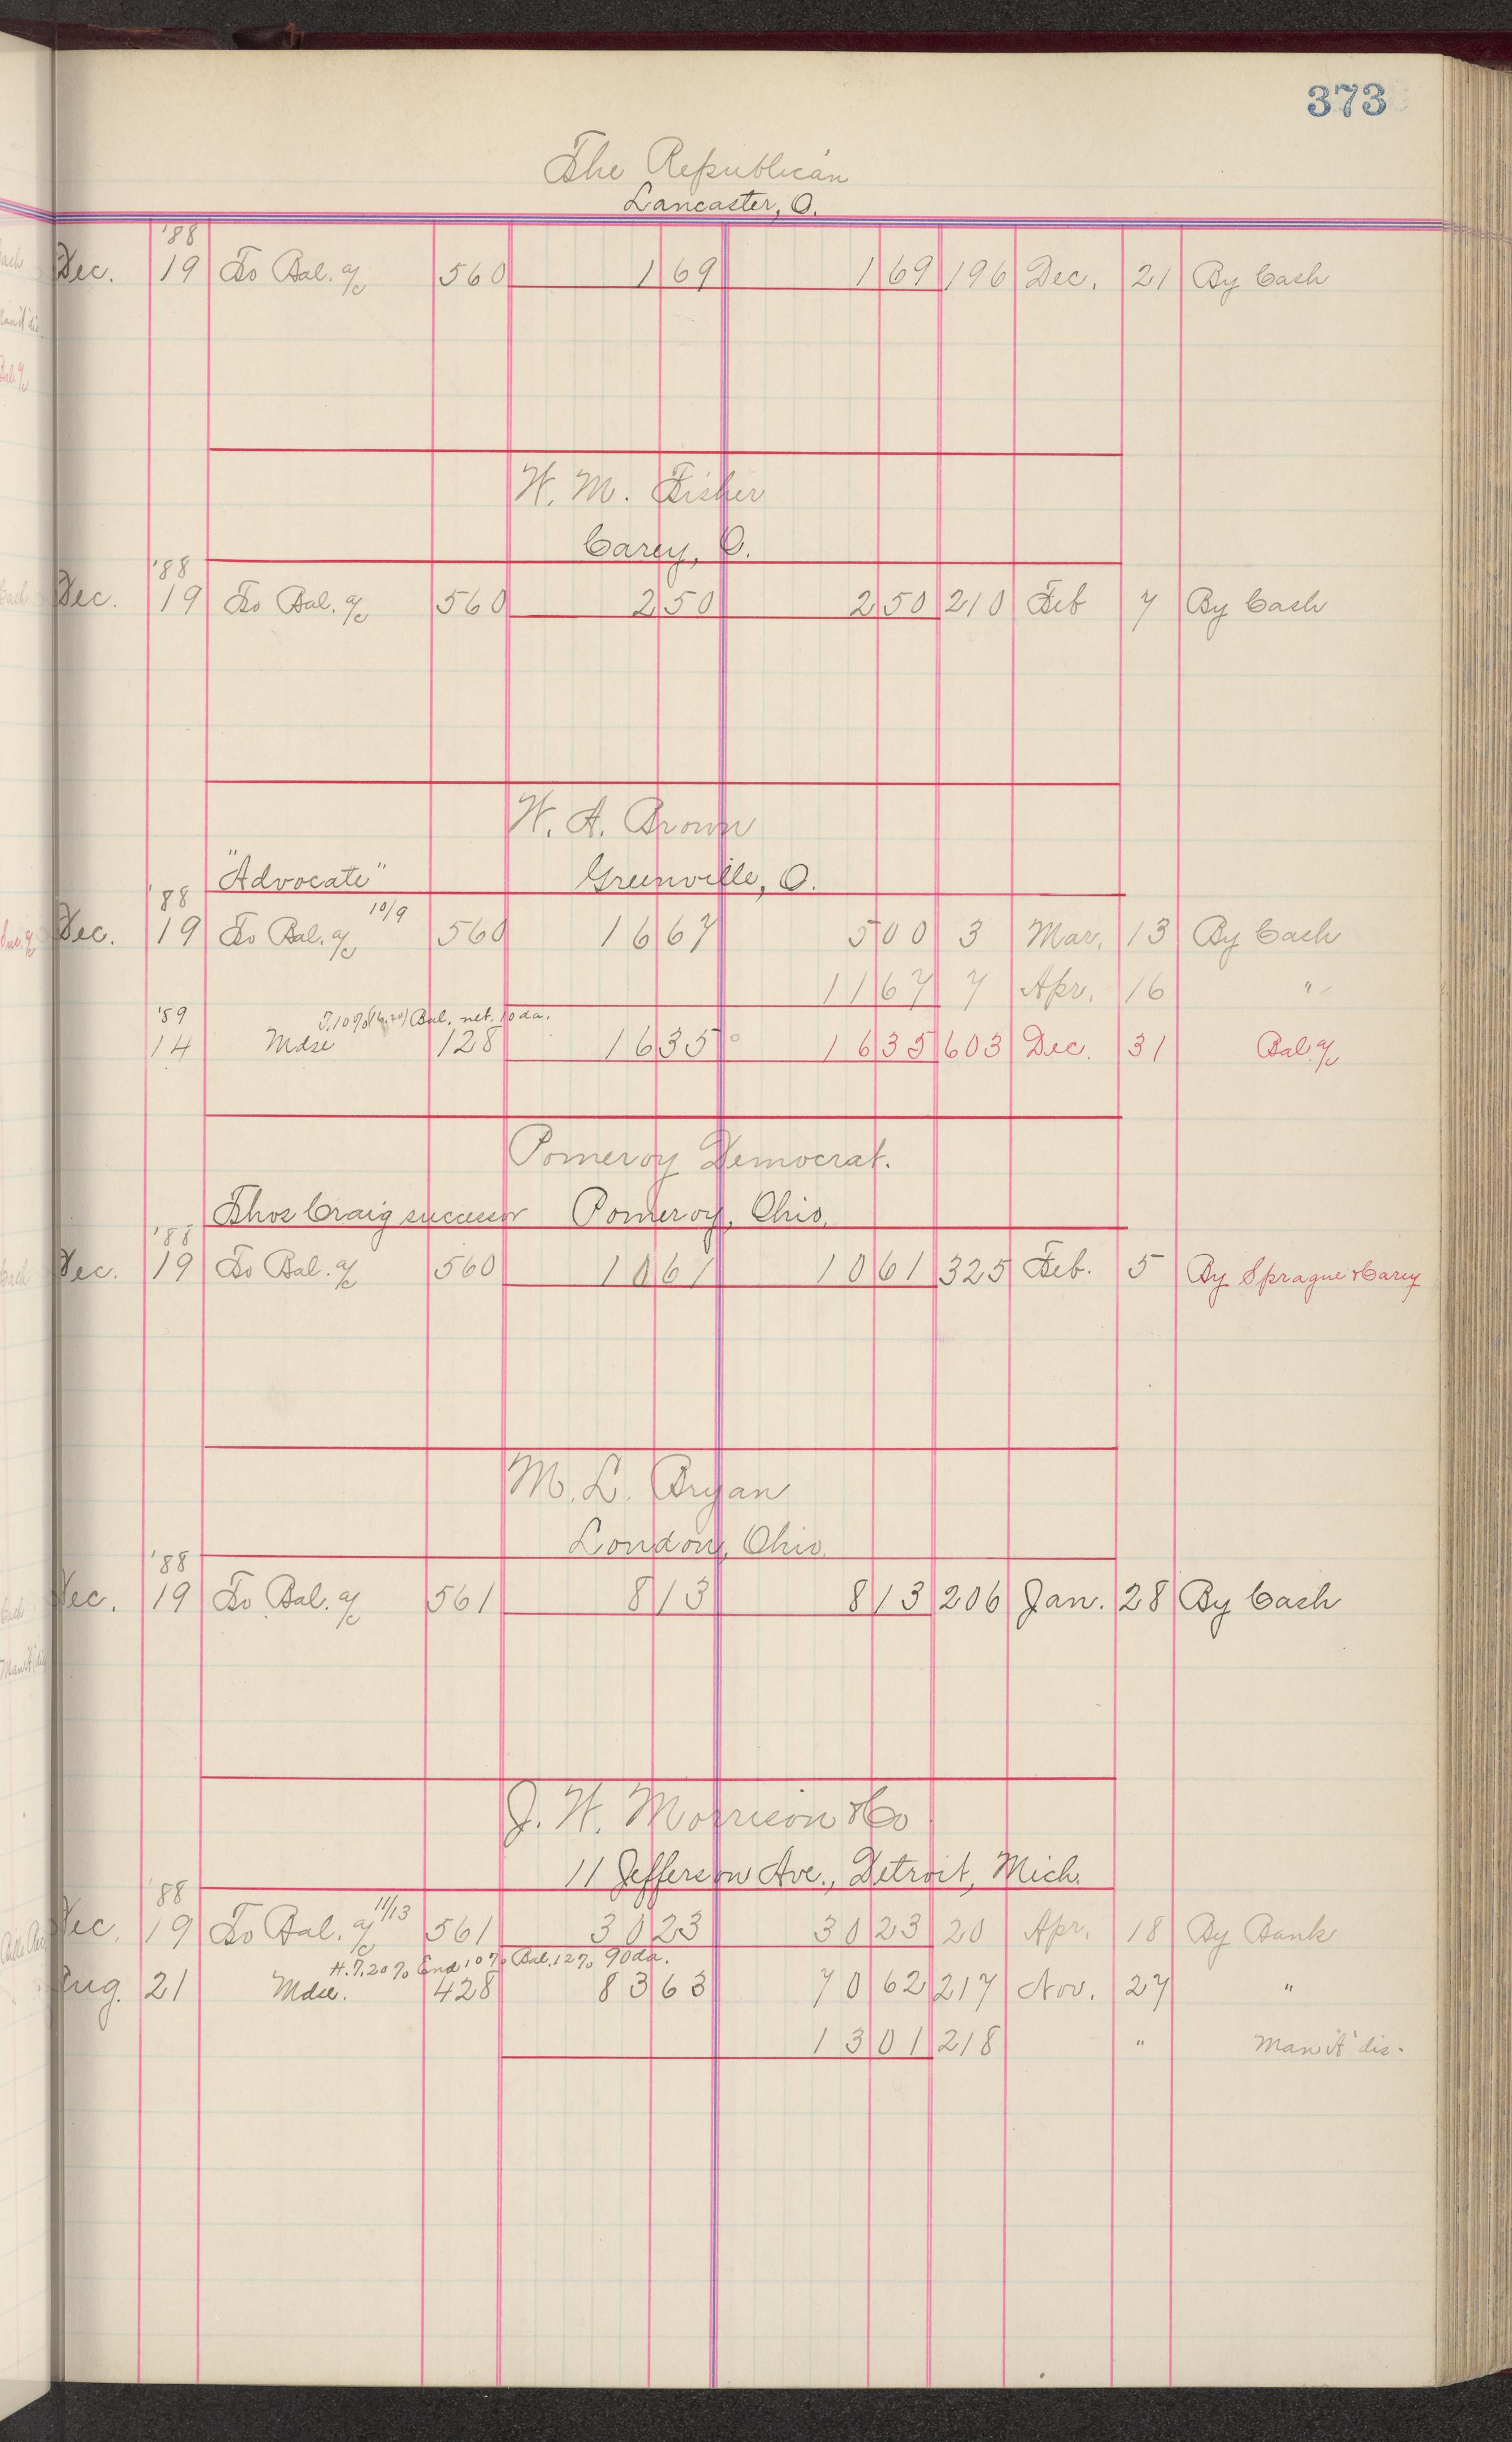 373
The Republican
Lancaster, O.
'88
Dec. 19 To Bal. a/c 560 1 69 1 69 196 Dec. 21 By Cash
W. M. Fisher
Carey, O.
'88
Dec. 19 To Bal. a/c 560 2 50 2 50 210 Feb 7 By Cash
W. A. Brown
"Advocate" Greenville, O.
'88
Dec. 19 To Bal. a/c 10/9 560 16 67 5 00 3 Mar. 13 By Cash
11 67 7 Apr. 16 "
'89 Bal. net. 10 da.
14 Mdse 128 16 35 16 35 603 Dec. 31 Bal a/c
Pomeroy Democrat.
Thos Craig successor Pomeroy, Ohio.
'88
Dec. 19 To Bal. a/c 560 10 61 10 61 325 Feb. 5 By Sprague & Carey
M. L. Bryan
London, Ohio
'88
Dec. 19 To Bal. a/c 561 8 13 8 13 206 Jan. 28 By Cash
J. W. Morrison & Co
11 Jefferson Ave., Detroit, Mich.
'88
Dec. 19 To Bal. a/c 11/13 561 30 23 30 23 20 Apr. 18 By Bank
H.T. 20% End 10% Bal. 12% 90 da.
Aug. 21 Mdse. 428 83 63 70 62 217 Nov. 27 "
13 01 218 " Man'f't' dis.